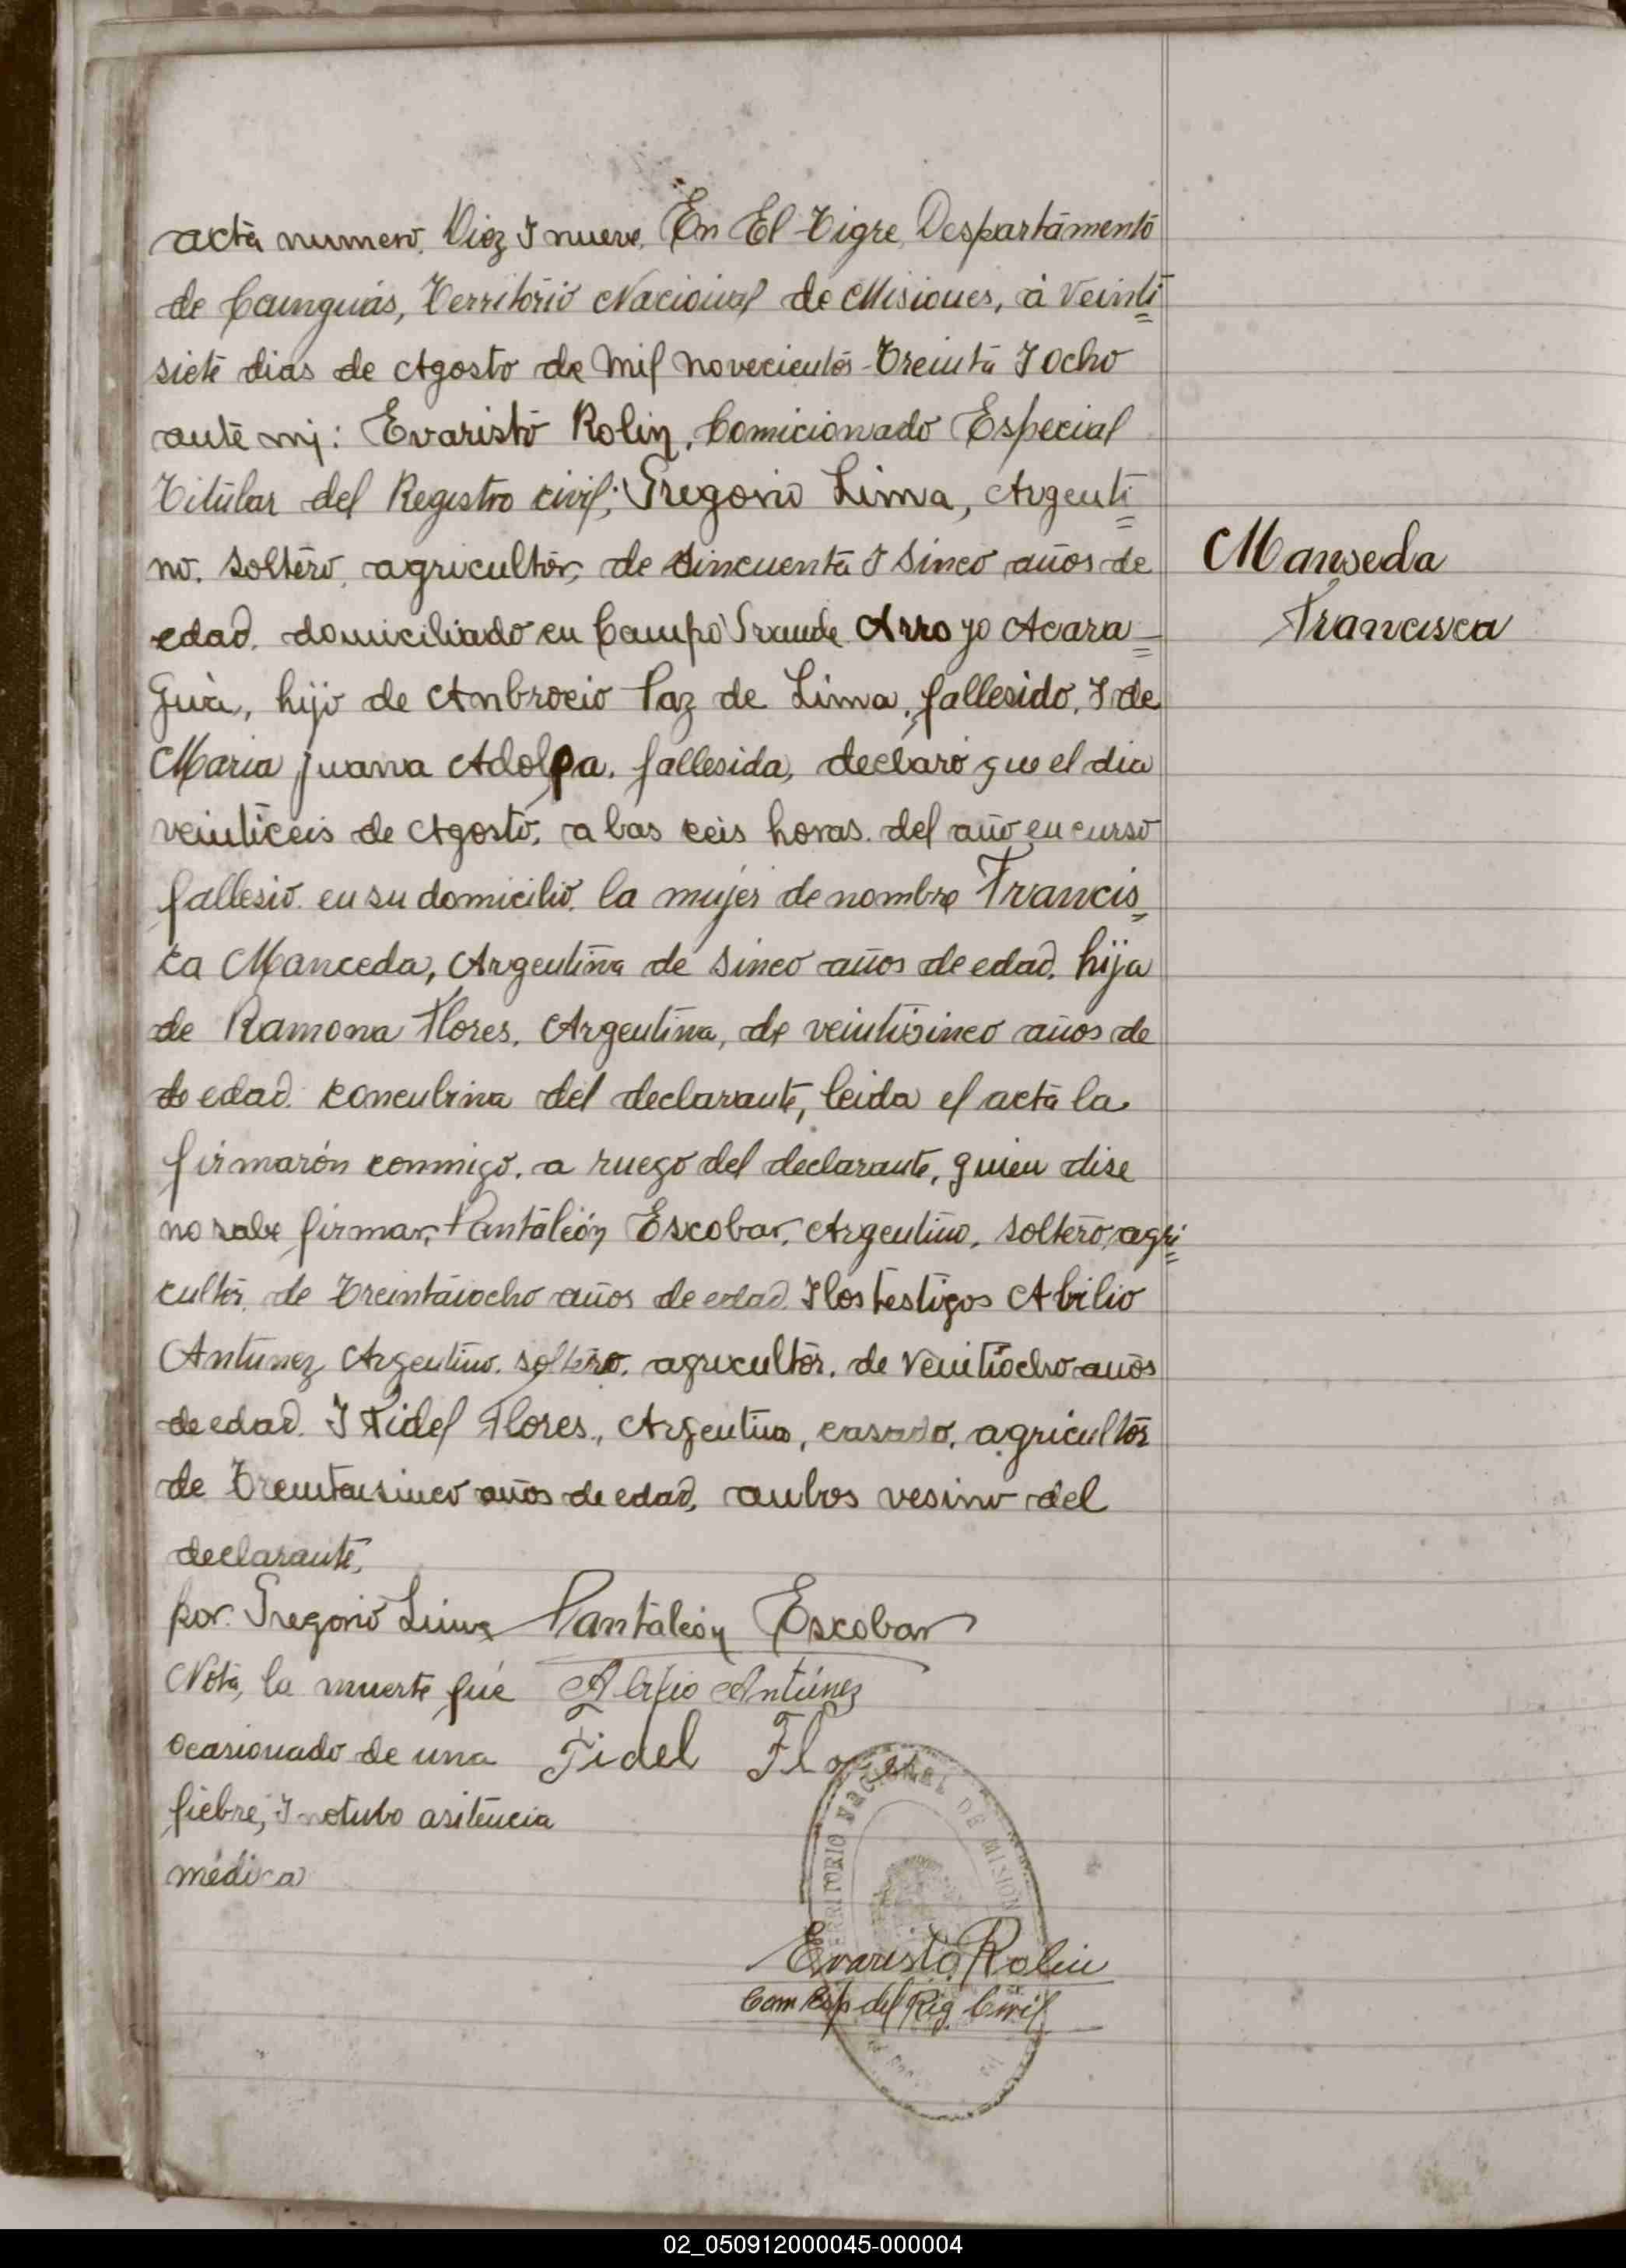 acta numero. Diez I nueve. En El Tigre, Despartamento
de Cainguás, Território Nacional de Misiones, à Veinti=
siete dias de Agosto de Mil novecientos Treinta I ocho
ante mi: Evaristo Rolin, Comicionado Especial
Titular del Registro civil; Gregorio Lima, Argenti=
no. soltero, agricultor, de sincuenta I sinco años de
edad. domiciliado en Campo Grande Arroyo Acara=
Guà, hijo de Anbrocio Paz de Lima, fallesido, I de
Maria Juana Adolpa, fallesida, declaró que el dia
veinticeis de Agosto, a las ceis horas. del año en curso
fallesio en su domicilio, la mujer de nombre Francis=
ca Manceda, Argentina de sinco años de edad. hija
de Ramona Flores. Argentina, de veintisinco años de
de edad. concubina del declarante, leida el acta la
firmarón conmigo. a ruego del declarante, quien dise
no sabe firmar, Pantaleón Escobar, Argentino. soltero, agri=
cultor, de Treintaiocho años de edad. I los testigos Abilio
Antunez Argentino. soltero. agricultor. de Veintiocho años
de edad. I Fidel Flores., Argentino, casado, agricultor
de Treintaisinco años de edad, anbos vesino del
declarante,
por Gregorio Lima Pantaleón Escobar
Nota, la muerte fué Antúnez
ocasionado de una Fidel Flores
fiebre, I notubo asitencia
médica
Manseda
Francisca
TERRITORIO NACIONAL DE MISION
Evaristo Rolin
Com Esp del Reg. Civil
02_050912000045-000004